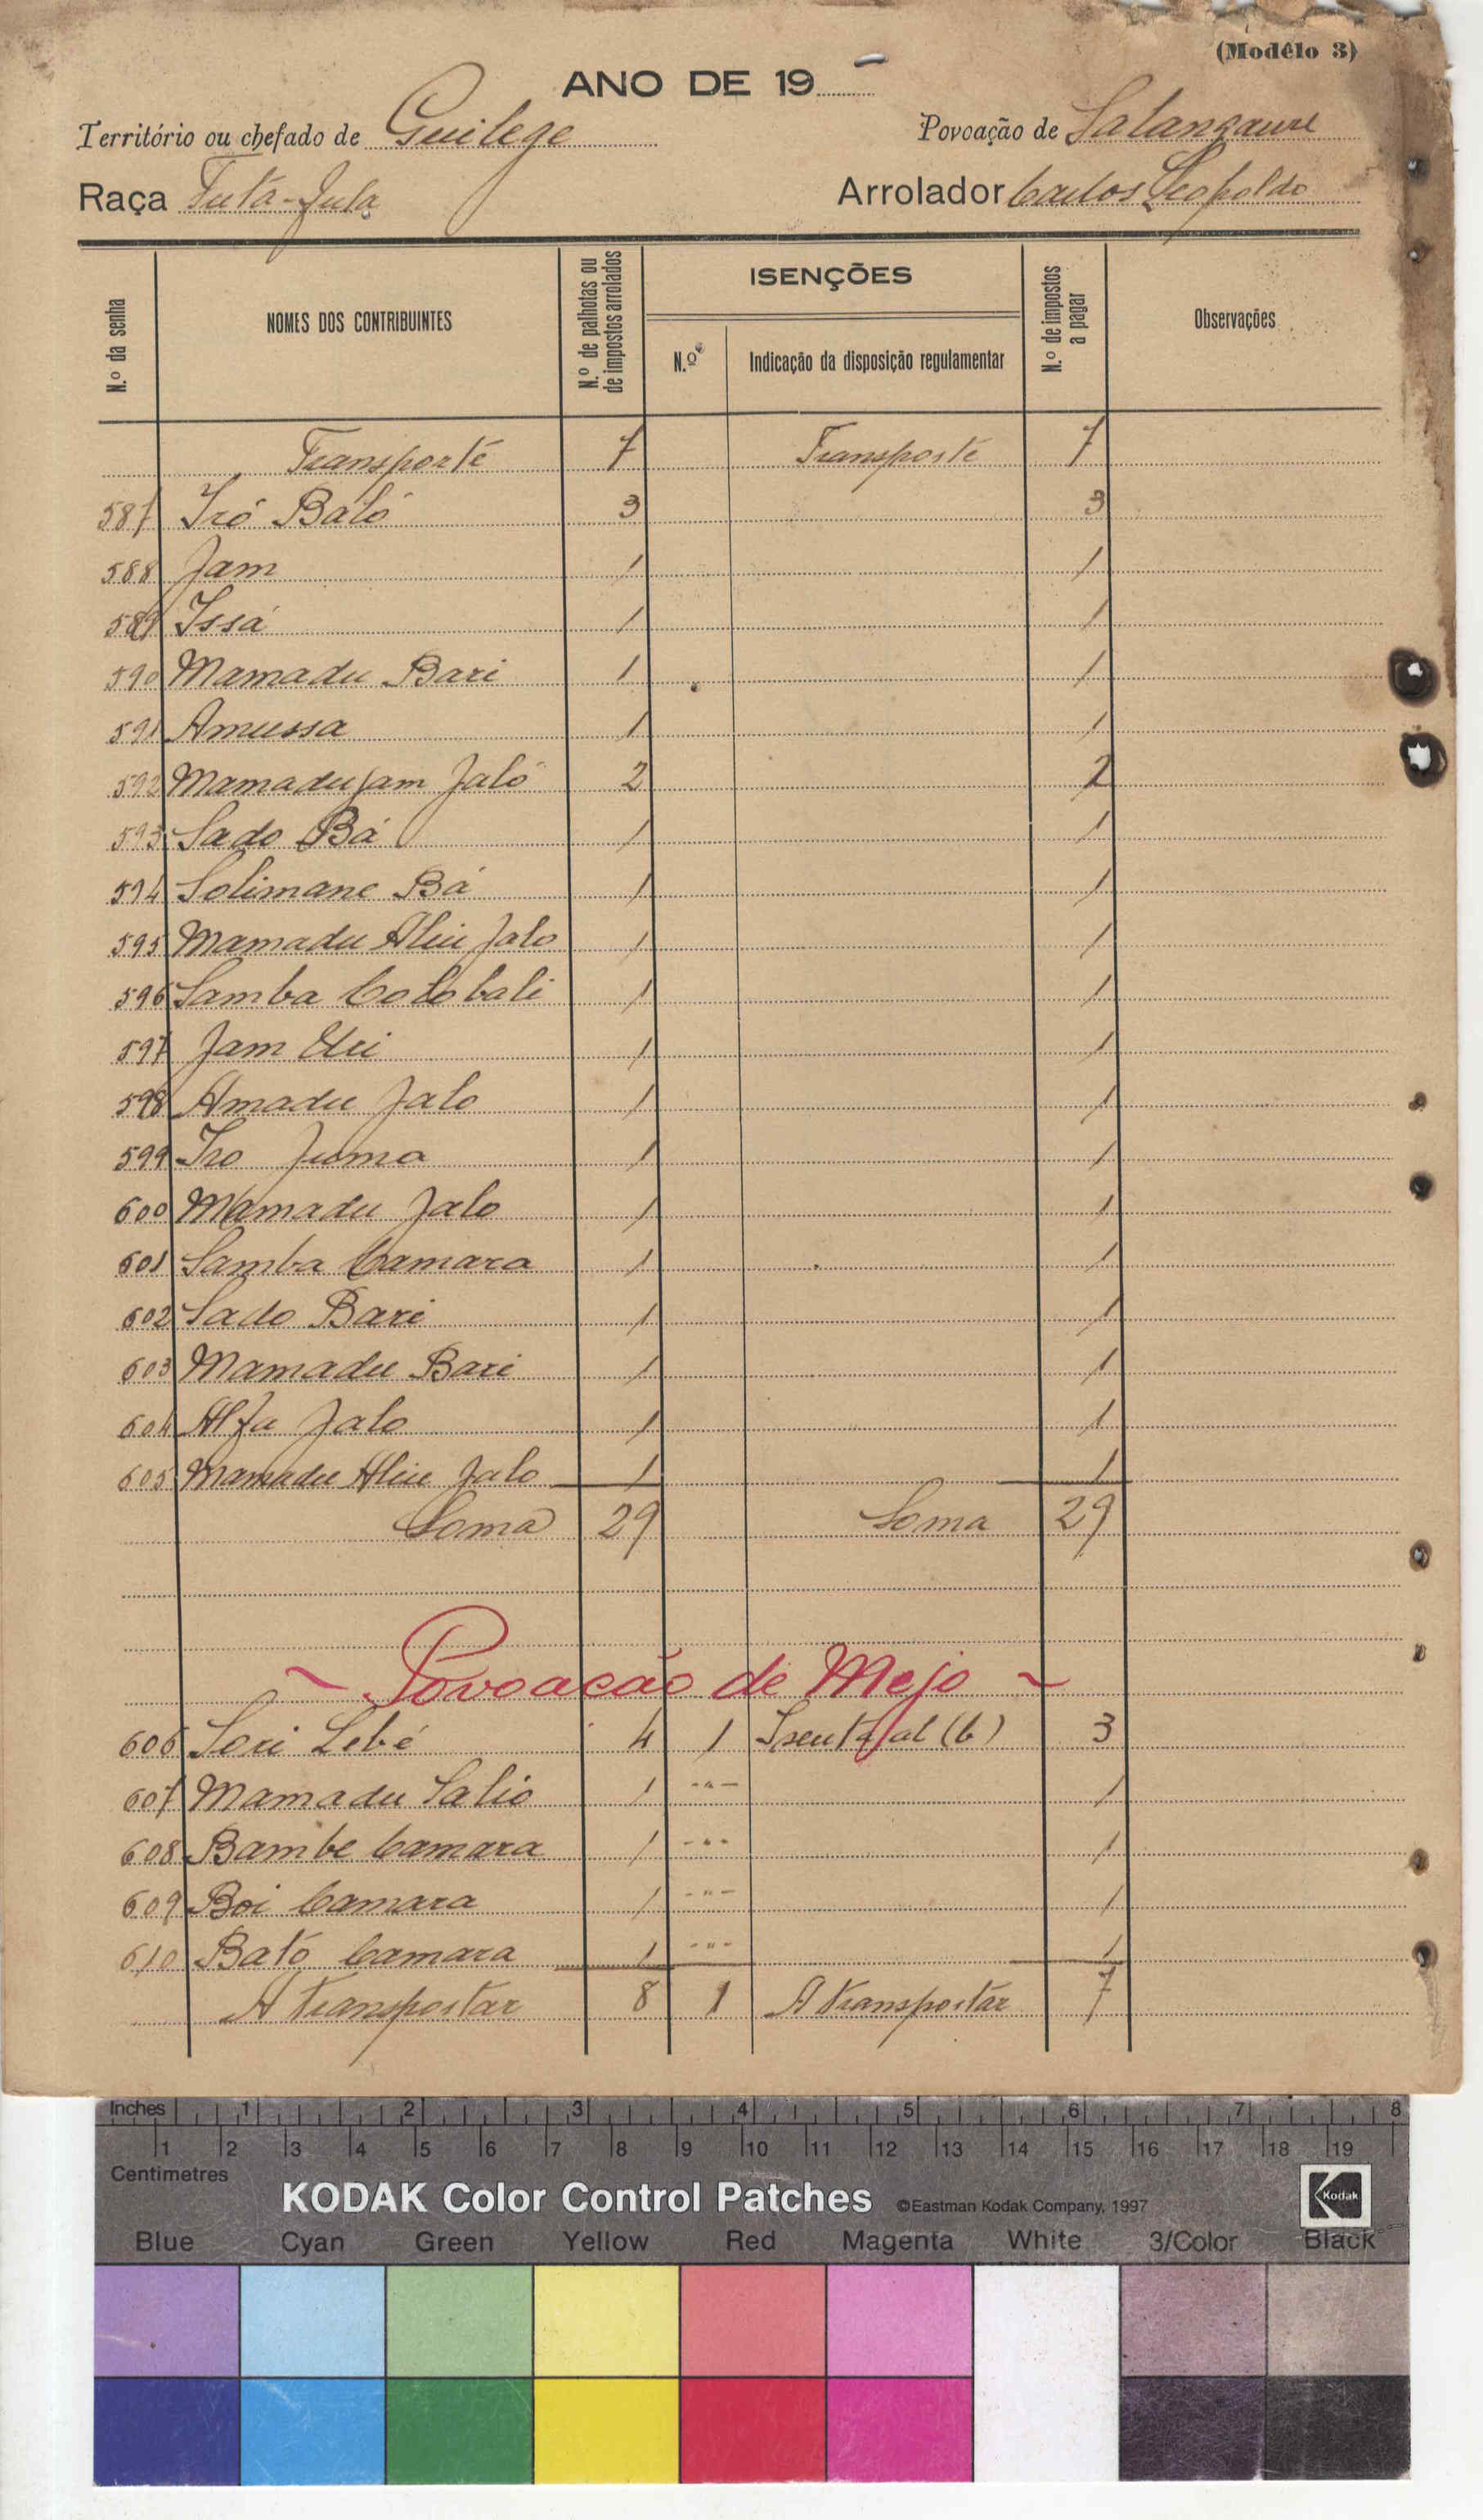 (Modêlo 3)
ANO DE 19 -
Território ou chefado de Guilege Povoação de Salanzaure
Raça Futa-Fula Arrolador Carlos Leopoldo
N.º da senha NOMES DOS CONTRIBUINTES N.º de palhotas ou de impostos arrolados ISENÇÕES N.º Indicação da disposição regulamentar N.º de impostos a pagar Observações
Transporte 7 Transporte 7
587 Iró Baló 3 3
588 Jam 1 1
589 Issá 1 1
590 Mamadu Bari 1 1
591 Amussa 1 1
592 Mamadu Jam Jaló 2 2
593 Sado Bá 1 1
594 Solimane Bá 1 1
595 Mamadu Aliu Jalo 1 1
596 Samba Colobali 1 1
597 Jam 1 1
598 Amadu Jalo 1 1
599 Iro Juma 1 1
600 Mamadu Jalo 1 1
601 Samba Camara 1 1
602 Sado Bari 1 1
603 Mamadu Bari 1 1
604 Alfa Jalo 1 1
605 Mamadu Aliu Jalo 1 1
Soma 29 Soma 29
~ Povoação de Mejo ~
606 Sori Lebé 4 1 Isentº al (b) 3
607 Mamadu Salio 1 -"- 1
608 Bambe Camara 1 -"- 1
609 Boi Camara 1 -"- 1
610 Bató Camara 1 -"- 1
A transportar 8 1 A transportar 7
Inches 1 2 3 4 5 6 7 8
1 2 3 4 5 6 7 8 9 10 11 12 13 14 15 16 17 18 19
Centimetres
KODAK Color Control Patches ©Eastman Kodak Company, 1997 Kodak
Blue Cyan Green Yellow Red Magenta White 3/Color Black